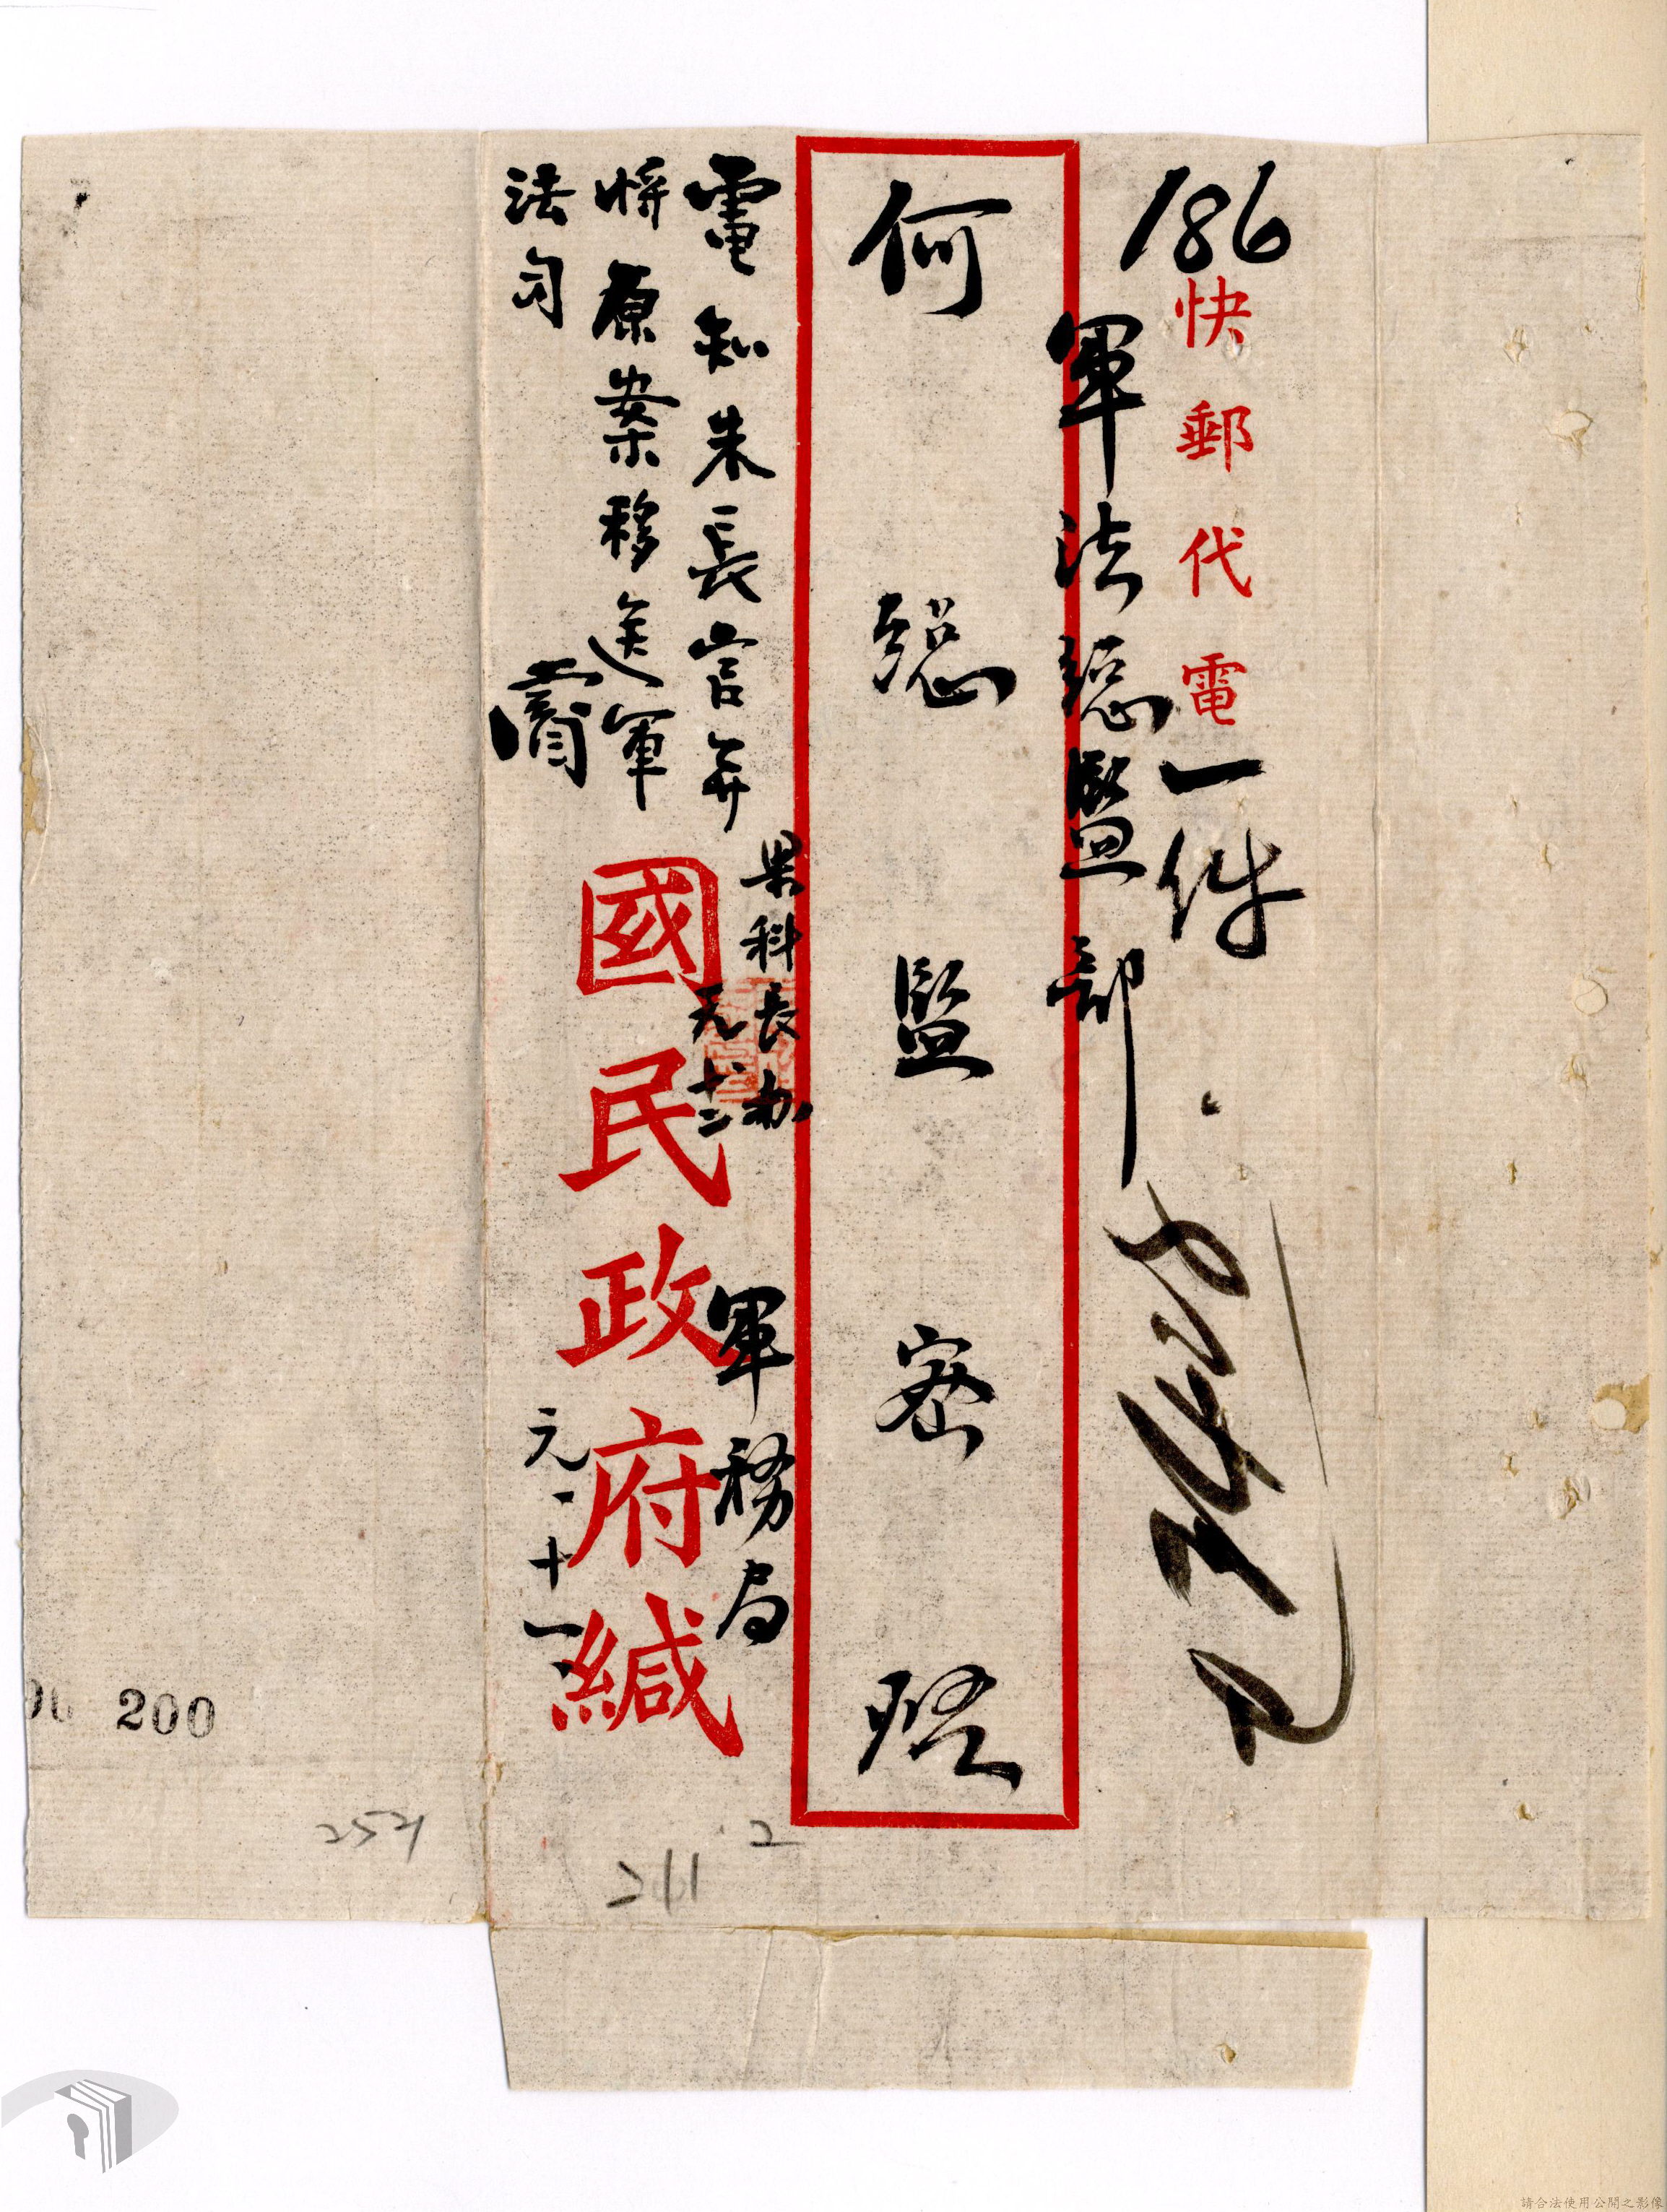 186
快郵代電一件
軍法總監部
何總監密啓
電知朱長官并
將原案移送軍
法司
科長办
軍務局
國民政府緘
元、十一、
200
254
211
2
請合法使用公開之影像